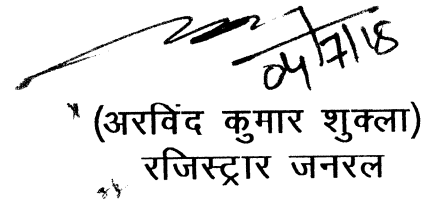 04/7/18
(अरविंद कुमार शुक्ला)
रजिस्ट्रार जनरल